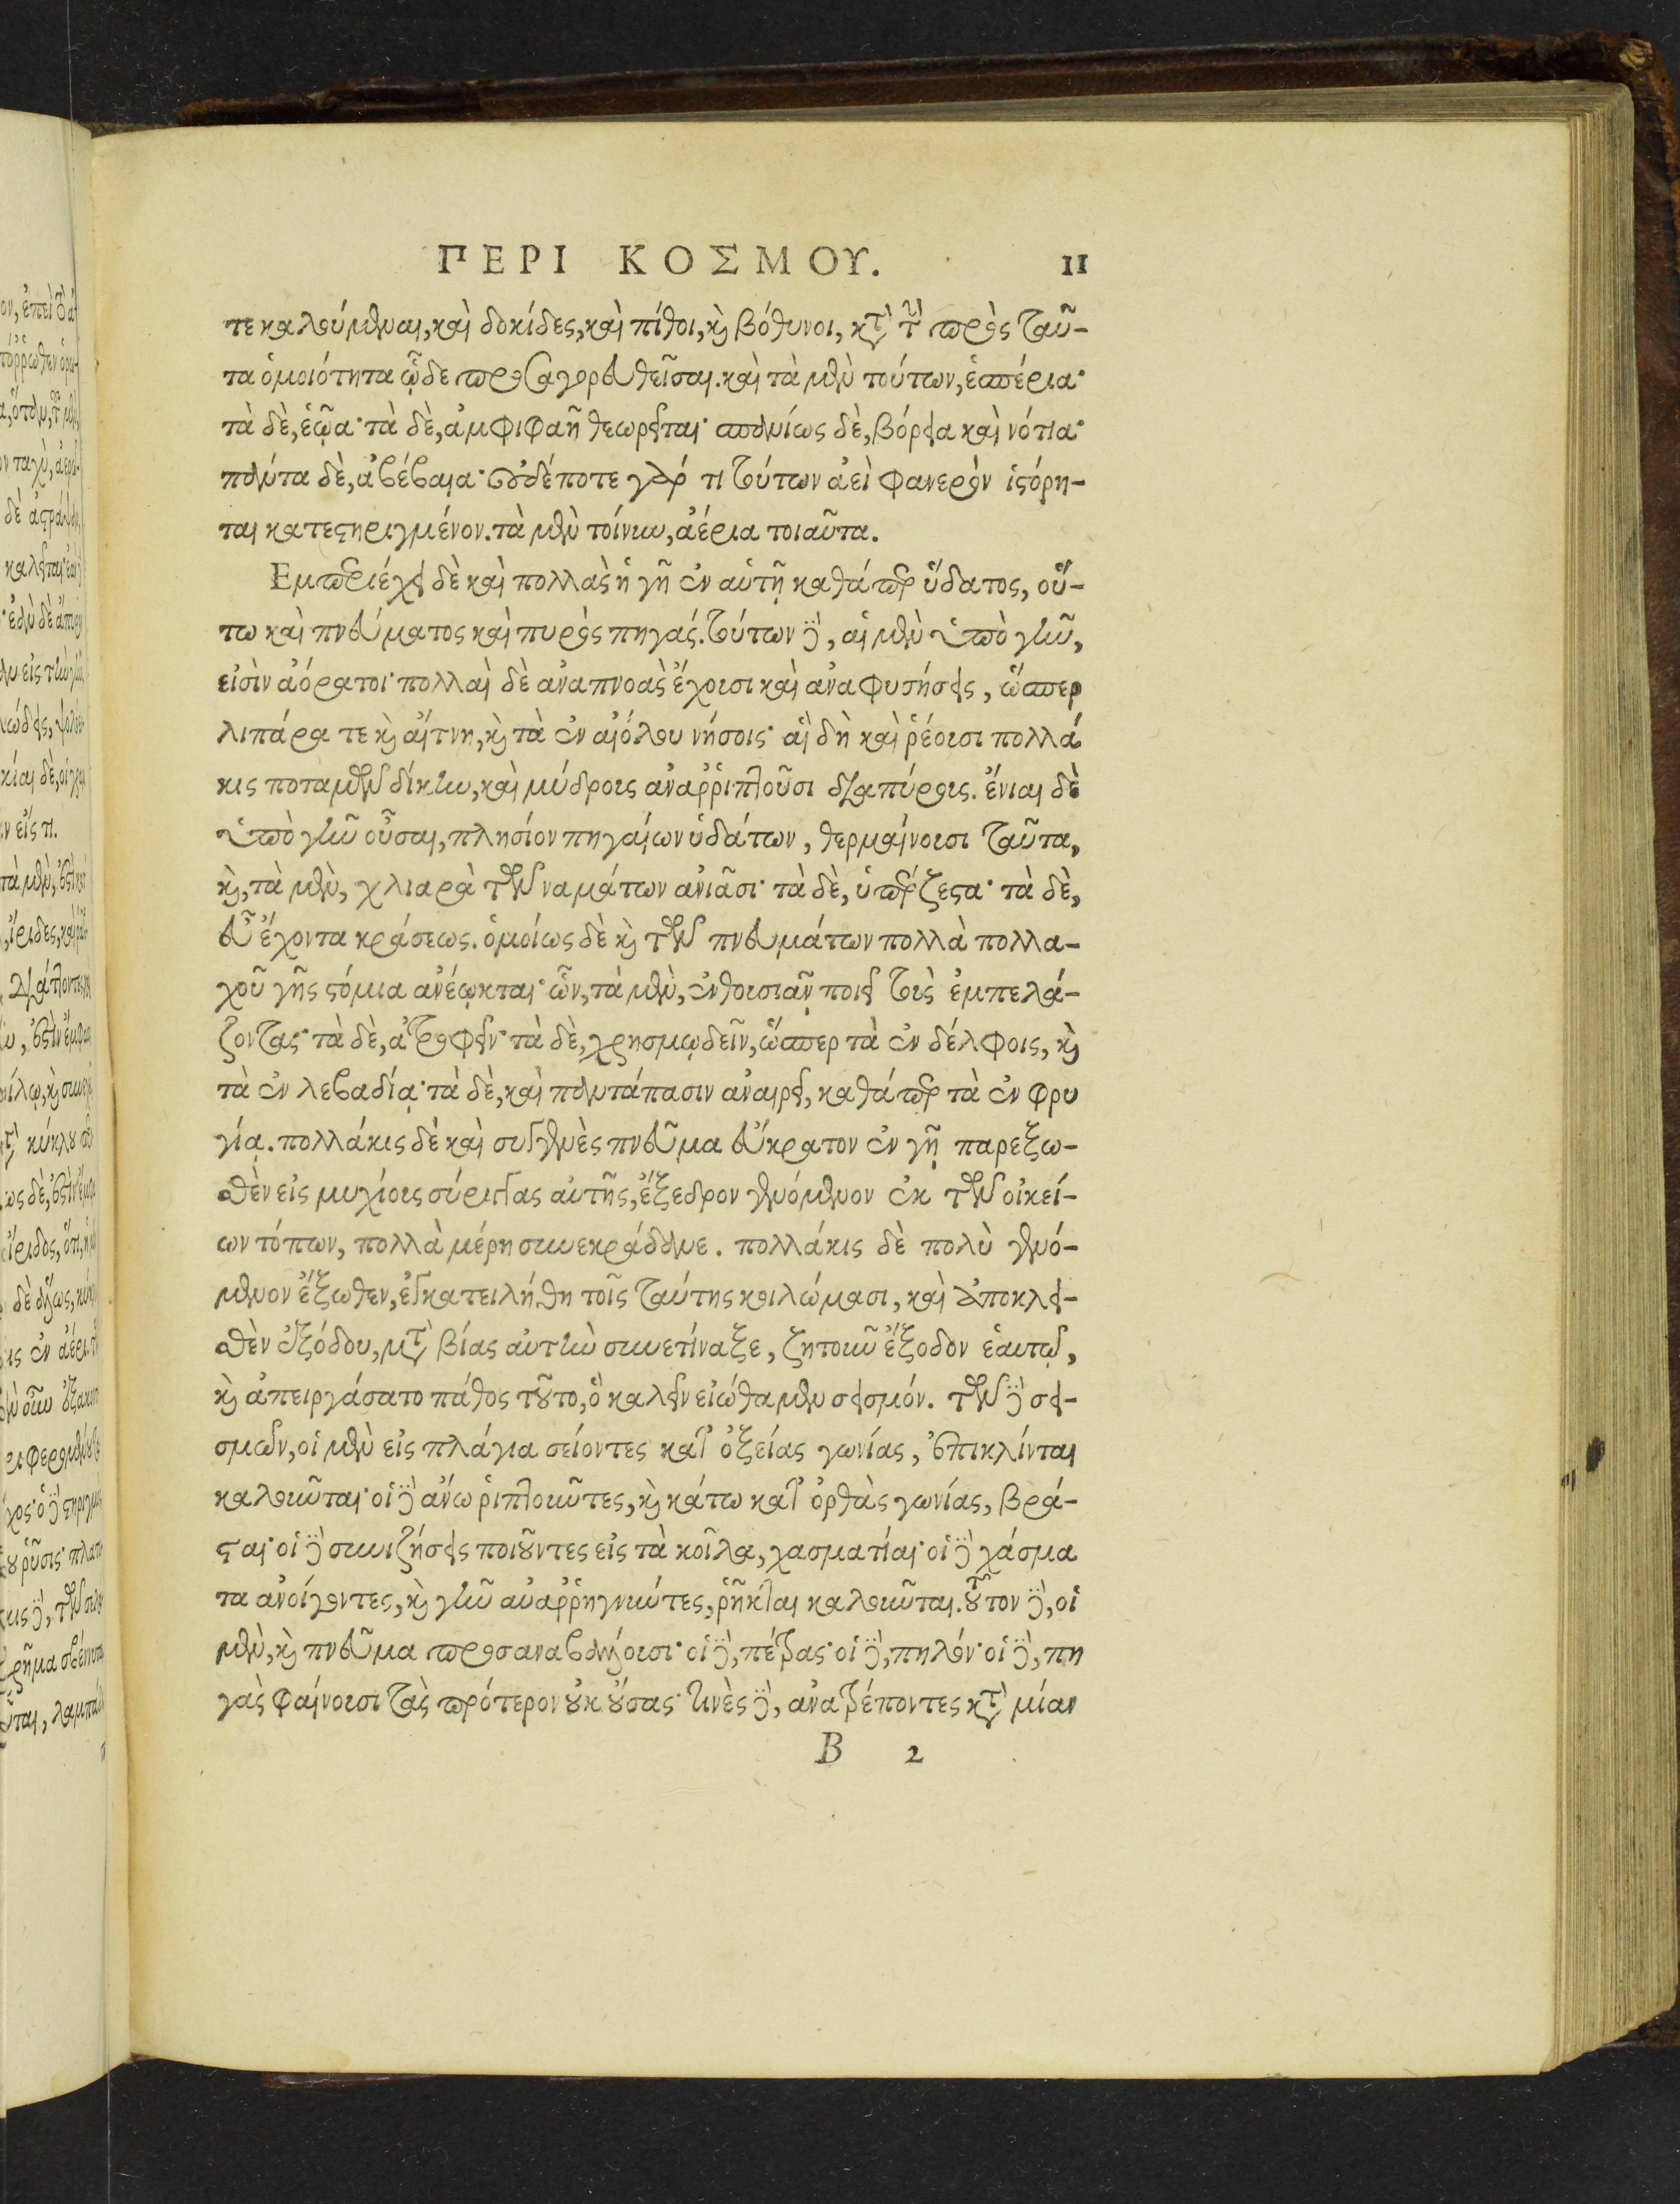 ΠΕΡΙ ΚΟΣΜΟΥ. 11
τε καλούμεναι, καὶ δοκίδες, καὶ πίθοι, καὶ βόθυνοι, κατὰ τὴν πρὸς ταῦ-
τα ὁμοιότητα ὧδε προσαγορευθεῖσαι. καὶ τὰ μὲν τούτων, ἑσπέρια·
τὰ δὲ, ἑῷα· τὰ δὲ, ἀμφιφαῆ θεωρεῖται· σπανίως δὲ, βόρεια καὶ νότια·
πάντα δὲ, ἀβέβαια· οὐδέποτε γάρ τι τούτων ἀεὶ φανερὸν ἱστόρη-
ται κατεστηριγμένον. τὰ μὲν τοίνυν, ἀέρια τοιαῦτα.
Εμπεριέχει δὲ καὶ πολλὰς ἡ γῆ ἐν αὑτῇ καθάπερ ὕδατος, οὕ-
τω καὶ πνεύματος καὶ πυρὸς πηγάς. τούτων δὲ, αἱ μὲν ὑπὸ γῆν,
εἰσὶν ἀόρατοι· πολλαὶ δὲ ἀναπνοὰς ἔχουσι καὶ ἀναφυσήσεις, ὥσπερ
λιπάρα τε καὶ αἴτνη, καὶ τὰ ἐν αἰόλου νήσοις· αἳ δὴ καὶ ῥέουσι πολλά
κις ποταμῶν δίκην, καὶ μύδρους ἀναῤῥιπτοῦσι διαπύρους. ἔνιαι δὲ
ὑπὸ γῆν οὖσαι, πλησίον πηγαίων ὑδάτων, θερμαίνουσι ταῦτα,
καὶ, τὰ μὲν, χλιαρὰ τῶν ναμάτων ἀνιᾶσι· τὰ δὲ, ὑπέρζεστα· τὰ δὲ,
εὖ ἔχοντα κράσεως. ὁμοίως δὲ καὶ τῶν πνευμάτων πολλὰ πολλα-
χοῦ γῆς στόμια ἀνέῳκται· ὧν, τὰ μὲν, ἐνθουσιᾷν ποιεῖ τοὺς ἐμπελά-
ζοντας· τὰ δὲ, ἀτροφεῖν· τὰ δὲ, χρησμῳδεῖν, ὥσπερ τὰ ἐν δέλφοις, καὶ
τὰ ἐν λεβαδίᾳ· τὰ δὲ, καὶ παντάπασιν ἀναιρεῖ, καθάπερ τὰ ἐν φρυ
γίᾳ. πολλάκις δὲ καὶ συγγενὲς πνεῦμα εὔκρατον ἐν γῇ παρεξω-
σθὲν εἰς μυχίους σύριγγας αὐτῆς, ἔξεδρον γενόμενον ἐκ τῶν οἰκεί-
ων τόπων, πολλὰ μέρη συνεκράδανε. πολλάκις δὲ πολὺ γενό-
μενον ἔξωθεν, ἐγκατειλήθη τοῖς ταύτης κοιλώμασι, καὶ ἀποκλει-
σθὲν ἐξόδου, μετὰ βίας αὐτὴν συνετίναξε, ζητοῦν ἔξοδον ἑαυτῷ,
καὶ ἀπειργάσατο πάθος τοῦτο, ὃ καλεῖν εἰώθαμεν σεισμόν. τῶν δὲ σει-
σμῶν, οἱ μὲν εἰς πλάγια σείοντες κατ᾽ ὀξείας γωνίας, ἐπικλίνται
καλοῦνται· οἱ δὲ ἄνω ῥιπτοῦντες, καὶ κάτω κατ᾽ ὀρθὰς γωνίας, βρά-
σται· οἱ δὲ συνιζήσεις ποιοῦντες εἰς τὰ κοῖλα, χασματίαι· οἱ δὲ χάσμα
τα ἀνοίγοντες, καὶ γῆν ἀναῤῥηγνύντες, ῥῆκται καλοῦνται. τούτων δὲ, οἱ
μὲν, καὶ πνεῦμα προσαναβάλλουσι· οἱ δὲ, πέτρας· οἱ δὲ, πηλόν· οἱ δὲ, πη
γὰς φαίνουσι τὰς πρότερον οὐκ οὔσας· τινὲς δὲ, ἀνατρέποντες κατὰ μίαν
B 2